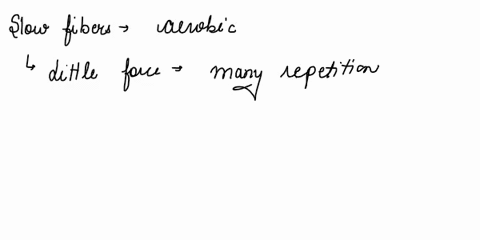 Slow fibers → aerobic
↳ little force → many repetition